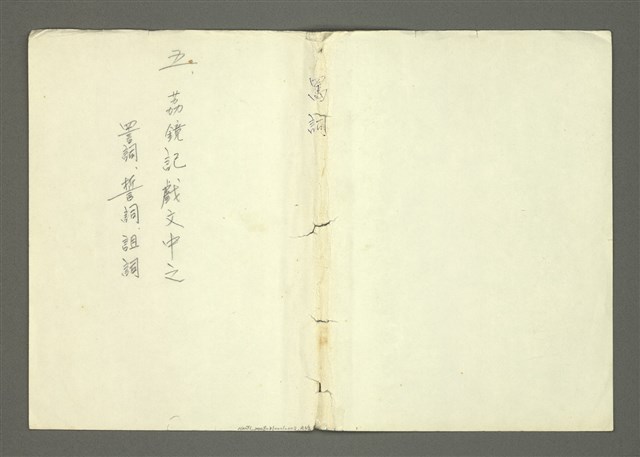 罵詞
五、荔鏡記戲文中之
詈詞、誓詞、詛詞